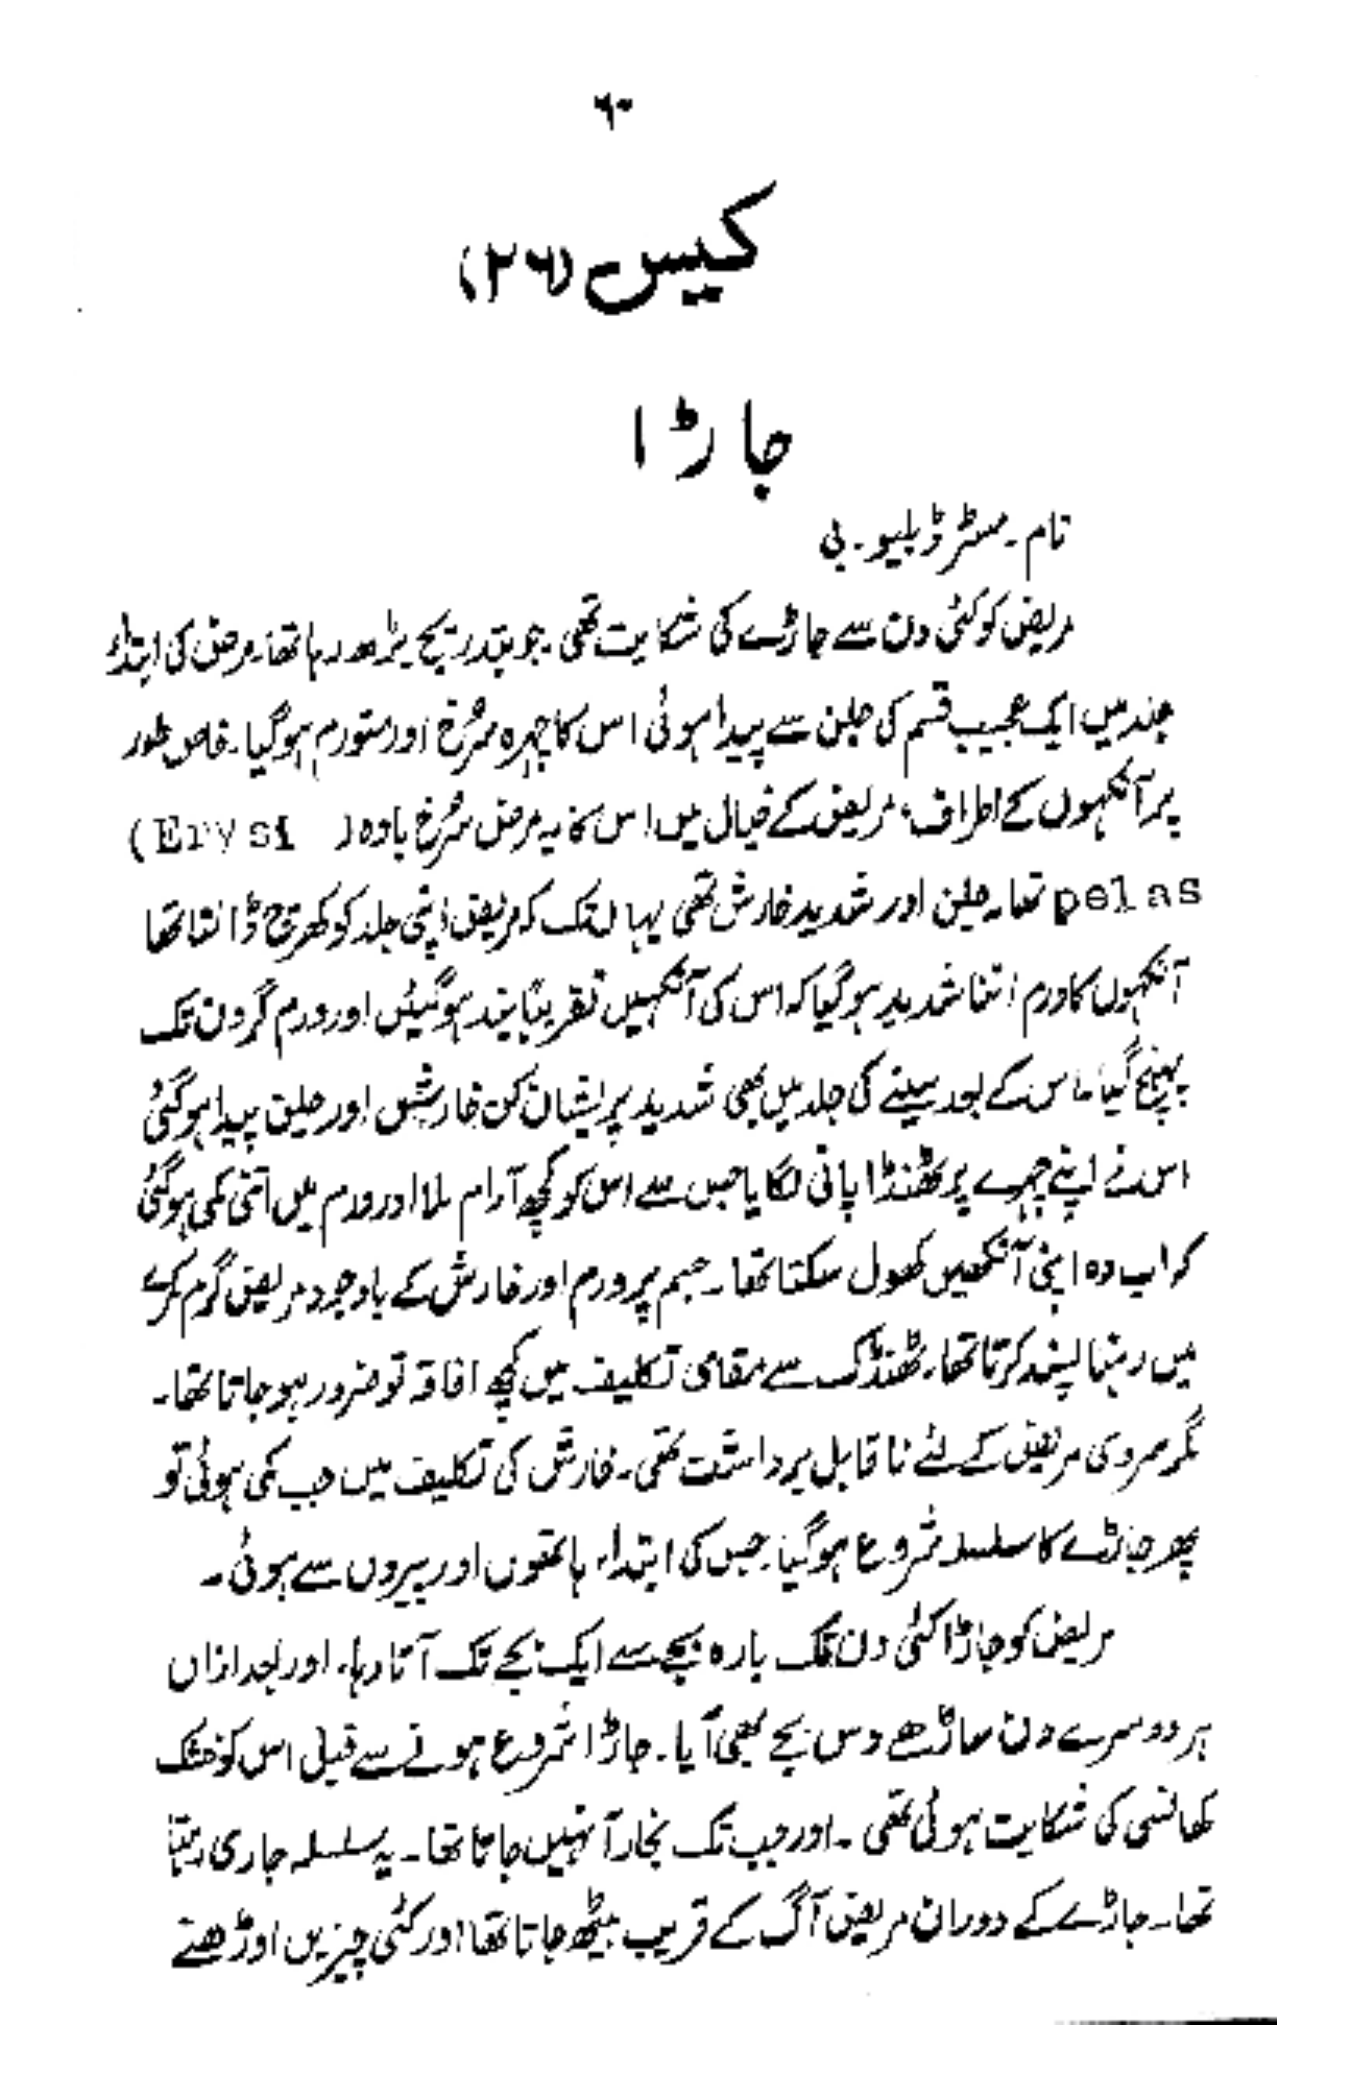 ۶۰
کیس (۲۶)
جاڑا
نام۔ مسٹر ڈبلیو۔ بی
مریض کو کئی دن سے جاڑے کی شکایت تھی۔ جو بتدریج بڑھ رہا تھا۔ مرض کی ابتداء
جلد میں ایک عجیب قسم کی جلن سے پیدا ہوئی اس کا چہرہ سُرخ اور متورم ہو گیا۔ خاص طور
پر آنکھوں کے اطراف، مریض کے خیال میں اس کا یہ مرض سُرخ بادہ (Erysi)
pelas تھا۔ جلن اور شدید خارش تھی یہاں تک کہ مریض اپنی جلد کو کھرچ ڈالتا تھا
آنکھوں کا ورم اتنا شدید ہو گیا کہ اس کی آنکھیں تقریباً بند ہو گئیں اور ورم گردن تک
پہنچ گیا۔ اس کے بعد سینے کی جلد میں بھی شدید پریشان کن خارش اور جلن پیدا ہو گئی
اس نے اپنے چہرے پر ٹھنڈا پانی لگایا جس سے اس کو کچھ آرام ملا اور ورم میں اتنی کمی ہو گئی
کہ اب وہ اپنی آنکھیں کھول سکتا تھا۔ جسم پر ورم اور خارش کے باوجود مریض گرم کمرے
میں رہنا پسند کرتا تھا۔ ٹھنڈک سے مقامی تکلیف میں کچھ افاقہ تو ضرور ہو جاتا تھا۔
مگر سردی مریض کے لئے ناقابل برداشت تھی۔ خارش کی تکلیف میں جب کمی ہوئی تو
پھر جاڑے کا سلسلہ شروع ہو گیا۔ جس کی ابتداء ہاتھوں اور پیروں سے ہوئی۔
مریض کو جاڑا کئی دن تک بارہ بجے سے ایک بجے تک آتا رہا، اور بعد ازاں
ہر دوسرے دن ساڑھے دس بجے بھی آیا۔ جاڑا شروع ہونے سے قبل اس کو خشک
کھانسی کی شکایت ہوئی تھی۔ اور جب تک بخار آ نہیں جاتا تھا۔ یہ سلسلہ جاری رہتا
تھا۔ جاڑے کے دوران مریض آگ کے قریب بیٹھ جاتا تھا اور کئی چیزیں اوڑھنے